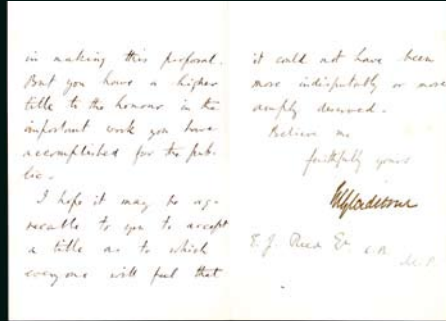 in making this proposal.
But you have a higher
title to the honour in the
important work you have
accomplished for the pub-
lic.
I hope it may be ag-
reeable to you to accept
a title as to which
everyone will feel that
it could not have been
more indisputably or more
amply deserved.
Believe me
faithfully yours
WEGladstone
E. J. Reed Esq C.B.
M.P.